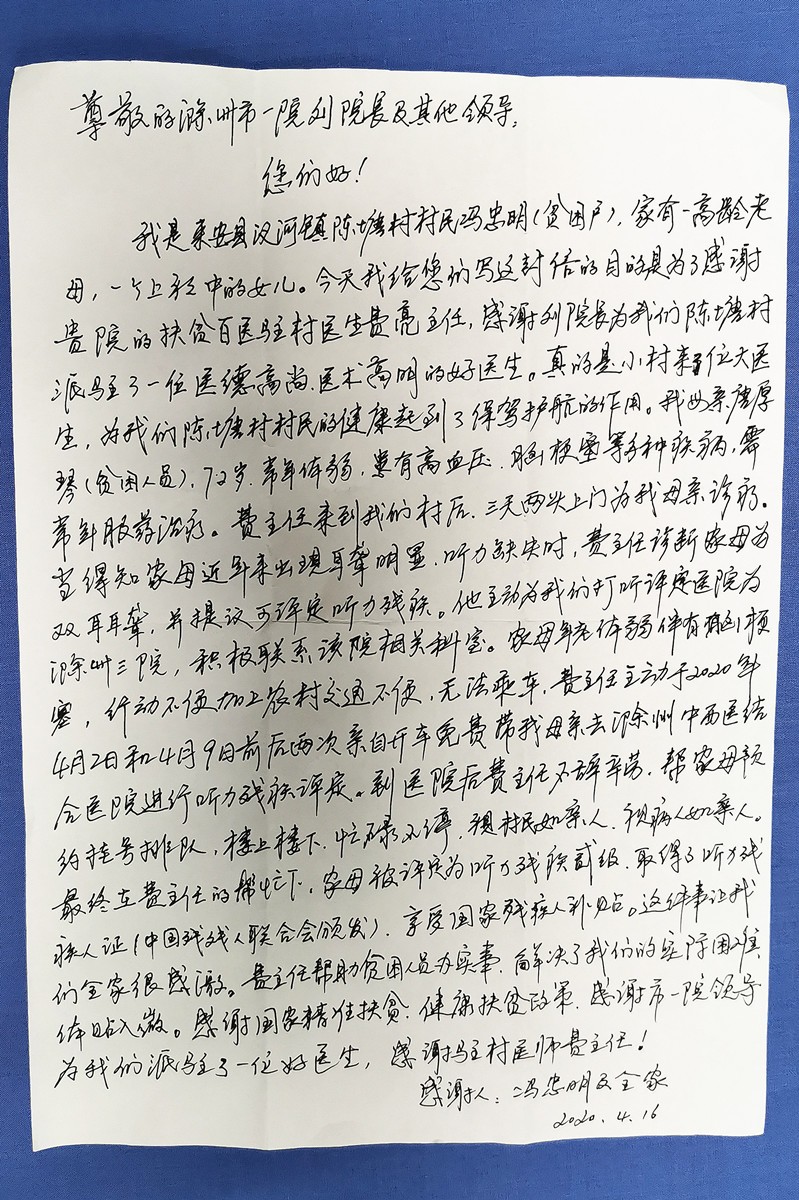 尊敬的滁州市一院刘院长及其他领导:
您们好!
我是来安县汊河镇陈塘村村民冯忠明(贫困户),家有一高龄老
母,一个上初中的女儿。今天我给您们写这封信的目的是为了感谢
贵院的扶贫百医驻村医生费亮主任,感谢刘院长为我们陈塘村
派驻了一位医德高尚.医术高明的好医生。真的是小村来了位大医
生,为我们陈塘村村民的健康起到了保驾护航的作用。我母亲唐厚
琴(贫困人员),72岁.常年体弱,患有高血压.脑梗塞等多种疾病,需
常年服药治疗。费主任来到我们村后.三天两头上门为我母亲诊疗。
当得知家母近年来出现耳聋明显.听力缺失时,费主任诊断家母为
双耳耳聋,并提议可评定听力残疾。他主动为我们打听评定医院为
滁州三院,积极联系该院相关科室。家母年老体弱伴有脑梗
塞,行动不便加上农村交通不便,无法乘车,费主任主动于2020年
4月2日和4月9日前后两次亲自开车免费带我母亲去滁州中西医结
合医院进行听力残疾评定。到医院后费主任不辞辛劳,帮家母预
约挂号排队,楼上楼下.忙碌不停.视村民如亲人.视病人如亲人。
最终在费主任的帮忙下,家母被评定为听力残疾贰级.取得了听力残
疾人证(中国残疾人联合会颁发),享受国家残疾人补贴。这件事让我
们全家很感激。费主任帮助贫困人员办实事.解决了我们的实际困难
体贴入微。感谢国家精准扶贫.健康扶贫政策.感谢市一院领导
为我们派驻了一位好医生,感谢驻村医师费主任!
感谢人:冯忠明及全家
2020.4.16